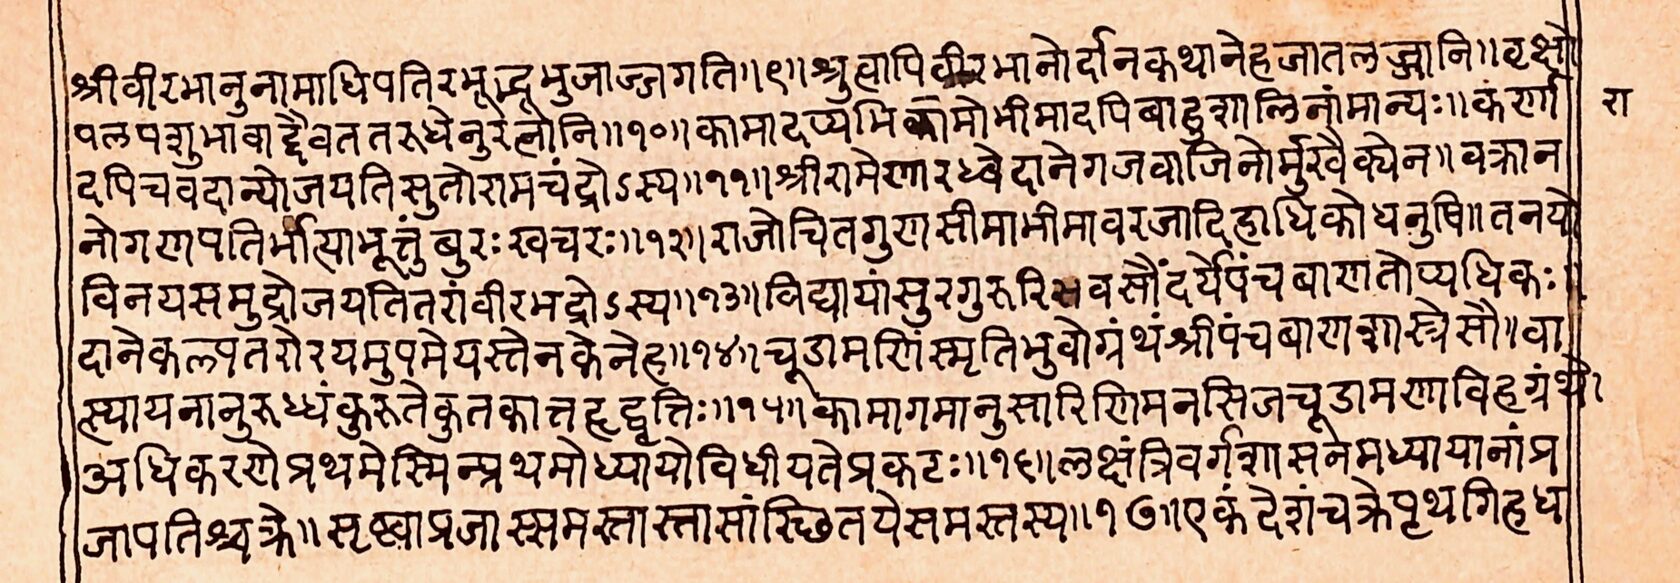 श्रीवीरभानुनामाधिपतिरभूद्भूभुजाज्जगति॥९॥श्रुत्वापिवीरभानोर्दानकथानेहजातलज्जानि॥वृक्षो
पलपशुभावाद्दैवततरुधेनुरत्नानि॥१०॥कामादप्यभिकामोभीमादपिबाहुशालिनांमान्यः॥कर्णा
रा
दपिचवदान्योजयतिसुतोरामचंद्रोऽस्य॥११॥श्रीरामेणारध्वेदानेगजवाजिनोर्मुखैक्येन॥वक्रान
नोगणपतिर्भात्याभूत्तुंबुरःखचरः॥१२॥राजोचितगुणसीमाभीमावरजादिहाधिकोधनुषि॥तनयो
विनयसमुद्रोजयतितरांवीरभद्रोऽस्य॥१३॥विद्यायांसुरगुरूरिववसौंदर्येपंचबाणतोप्यधिकः॥
दानेकल्पतरोरयमुपमेयस्तेनकेनेह॥१४॥चूडामणिंस्मृतिभुवोग्रंथंश्रीपंचबाणशास्त्रेसौ॥वा
त्स्यायनानुरुध्धंकुरुतेकुतकात्तहृद्वृत्तिः॥१५॥कामागमानुसारिणिमनसिजचूडामणाविहग्रंथे।
अधिकरणेप्रथमेस्मिन्प्रथमोध्यायोविधीयतेप्रकटः॥१६॥लक्षंत्रिवर्गशासनमध्यायानांप्र
जापतिश्चक्रे॥सृष्ट्वाप्रजास्समस्तास्तासांस्छितयेसमस्तस्य॥१७॥एकंदेशंचक्रेपृथगिहध